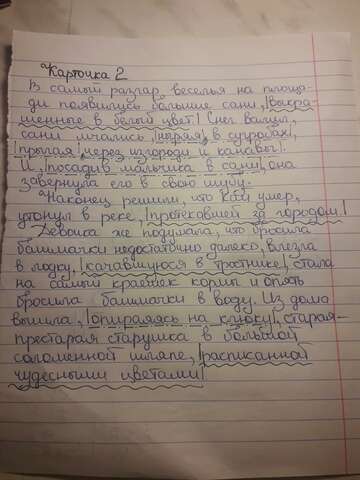 Карточка 2
В самый разгар веселья на площа-
ди появились большие сани, |выкра-
шенные в белый цвет.| Снег валил,
сани мчались, |ныряя в сугробах|,
|прыгая через изгороди и канавы|.
И, |посадив мальчика в сани|, она
завернула его в свою шубу.
Наконец решили, что Кай умер,
утонул в реке, |протекавшей за городом.|
Девочка же подумала, что бросила
башмачки недостаточно далеко, влезла
в лодку, |качавшуюся в тростнике|, стала
на самый краешек кормы и опять
бросила башмачки в воду. Из дома
вышла, |опираясь на клюку|, старая-
престарая старушка в большой
соломенной шляпе, |расписанной
чудесными цветами|